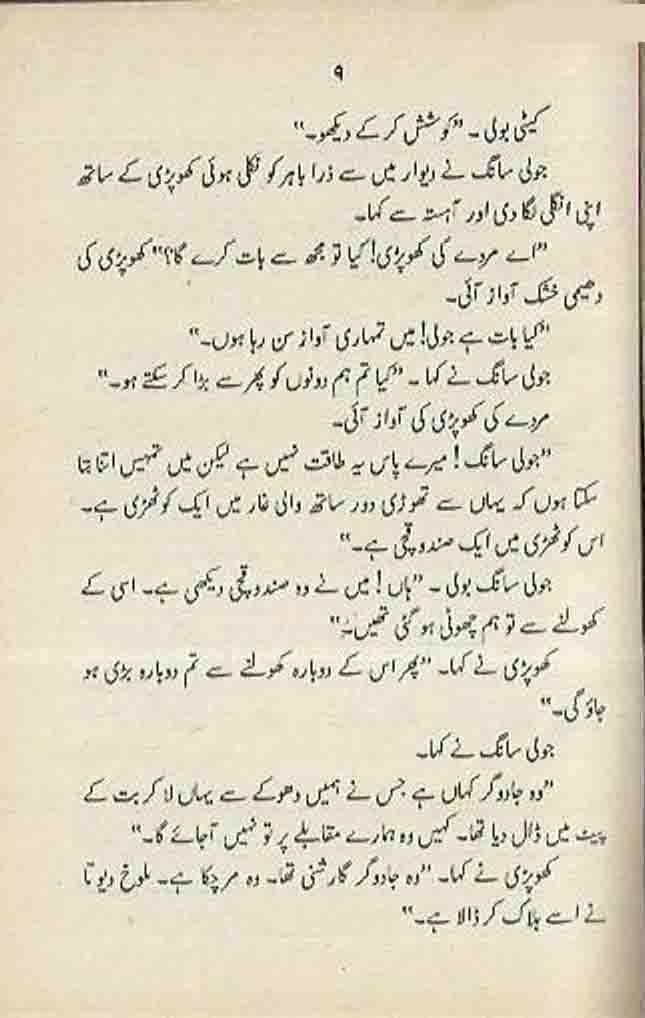 ۹
کیٹی بولی ۔ "کوشش کر کے دیکھو۔"
جولی سانگ نے دیوار میں سے ذرا باہر کو نکلی ہوئی کھوپڑی کے ساتھ
اپنی انگلی لگا دی اور آہستہ سے کہا۔
"اے مردے کی کھوپڑی! کیا تو مجھ سے بات کرے گا؟" کھوپڑی کی
دھیمی خشک آواز آئی۔
"کیا بات ہے جولی! میں تمہاری آواز سن رہا ہوں۔"
جولی سانگ نے کہا ۔ "کیا تم ہم دونوں کو پھر سے بڑا کر سکتے ہو۔"
مردے کی کھوپڑی کی آواز آئی۔
"جولی سانگ! میرے پاس یہ طاقت نہیں ہے لیکن میں تمہیں اتنا بتا
سکتا ہوں کہ یہاں سے تھوڑی دور ساتھ والی غار میں ایک کوٹھڑی ہے۔
اس کوٹھڑی میں ایک صندوقچی ہے۔"
جولی سانگ بولی ۔ "ہاں! میں نے وہ صندوقچی دیکھی ہے۔ اسی کے
کھولنے سے تو ہم چھوٹی ہو گئی تھیں۔"
کھوپڑی نے کہا۔ "پھر اس کے دوبارہ کھولنے سے تم دوبارہ بڑی ہو
جاؤ گی۔"
جولی سانگ نے کہا۔
"وہ جادوگر کہاں ہے جس نے ہمیں دھوکے سے یہاں لا کر بت کے
پیٹ میں ڈال دیا تھا۔ کہیں وہ ہمارے مقابلے پر تو نہیں آجائے گا۔"
کھوپڑی نے کہا۔ "وہ جادوگر گارشنی تھا۔ وہ مر چکا ہے۔ بلوخ دیوتا
نے اسے ہلاک کر ڈالا ہے۔"